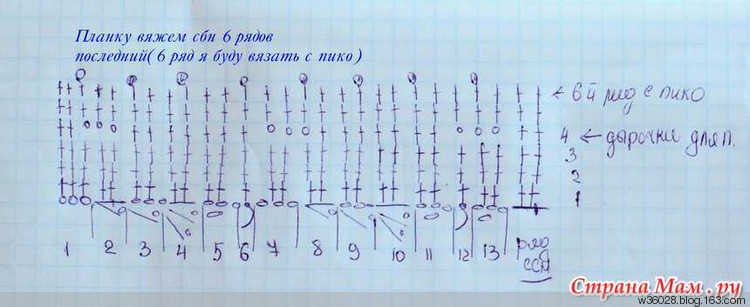 Планку вяжем сбн 6 рядов
последний( 6 ряд я буду вязать с пико )
← 6й ряд с пико
4 ← дырочки для п.
3
2
1
1 2 3 4 5 6 7 8 9 10 11 12 13 ряд
ссн
Страна Мам.ру
w36028.blog.163.com